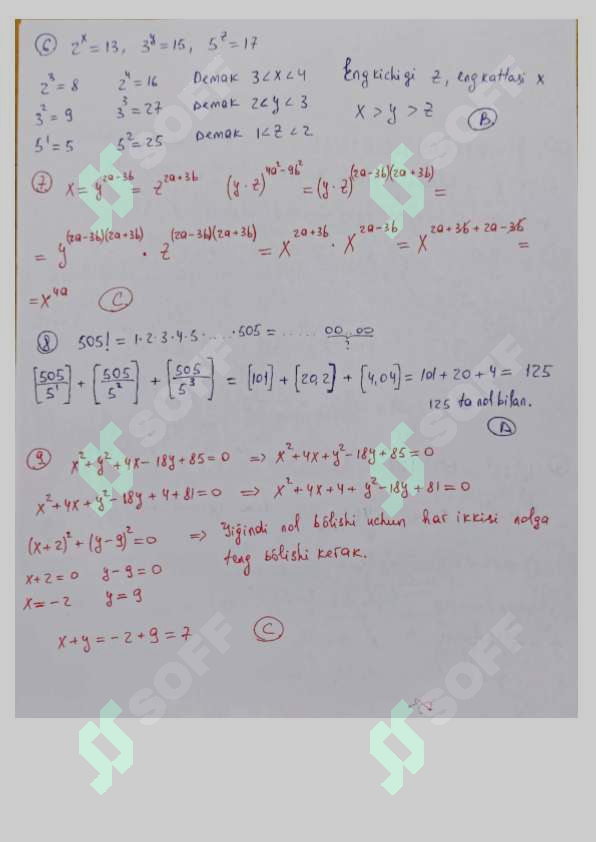 6 2^x = 13, 3^y = 15, 5^z = 17
2^3 = 8 2^4 = 16 Demak 3 < x < 4 Eng kichigi z, eng kattasi x
3^2 = 9 3^3 = 27 Demak 2 < y < 3 x > y > z B
5^1 = 5 5^2 = 25 Demak 1 < z < 2
7 x = y^(2a-3b) = z^(2a+3b) (y·z)^(4a^2-9b^2) = (y·z)^((2a-3b)(2a+3b)) =
= y^((2a-3b)(2a+3b)) · z^((2a-3b)(2a+3b)) = x^(2a+3b) · x^(2a-3b) = x^(2a+3b+2a-3b) =
= x^(4a) C
8 505! = 1·2·3·4·5·.....·505 = ...... 00...00 ?
[505/5^1] + [505/5^2] + [505/5^3] = [101] + [20,2] + [4,04] = 101 + 20 + 4 = 125
125 ta nol bilan.
A
9 x^2 + y^2 + 4x - 18y + 85 = 0 => x^2 + 4x + y^2 - 18y + 85 = 0
x^2 + 4x + y^2 - 18y + 4 + 81 = 0 => x^2 + 4x + 4 + y^2 - 18y + 81 = 0
(x+2)^2 + (y-9)^2 = 0 => Yig'indi nol bo'lishi uchun har ikkisi nolga
teng bo'lishi kerak.
x + 2 = 0 y - 9 = 0
x = -2 y = 9
x + y = -2 + 9 = 7 C
SOFF
SOFF
SOFF
SOFF
SOFF
SOFF